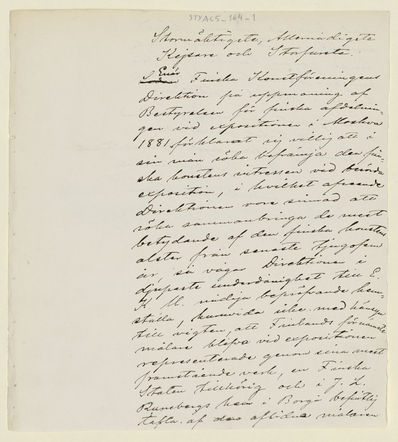 STYAC5-164-1
Stormäktigste, Allernådigste
Kejsare och Storfurste.
Enär Finska Konstföreningens
Direktion på uppmaning af
Bestyrelsen för finska afdelnin-
gen vid expositionen i Moskwa
1881 förklarat sig villig att i
sin mån söka befrämja den fin-
ska konstens intressen vid berörda
exposition, i hvilket afseende
Direktionen vore sinnad att
söka sammanbringa de mest
betydande af den finska konstens
alster från senaste tjugofem
år, så vågar Direktionen i
djupaste underdånighet till E.
K. M. vidja bepröfvande hem-
ställa, huruvida icke med hänsyn
till vigten, att Finlands förnämsta
målare blefve vid expositionen
representerade genom sina mest
framstående verk, en Finska
Staten tillhörig och i J. L.
Runebergs hem i Borgå befintlig
tafla af den aflidne målaren